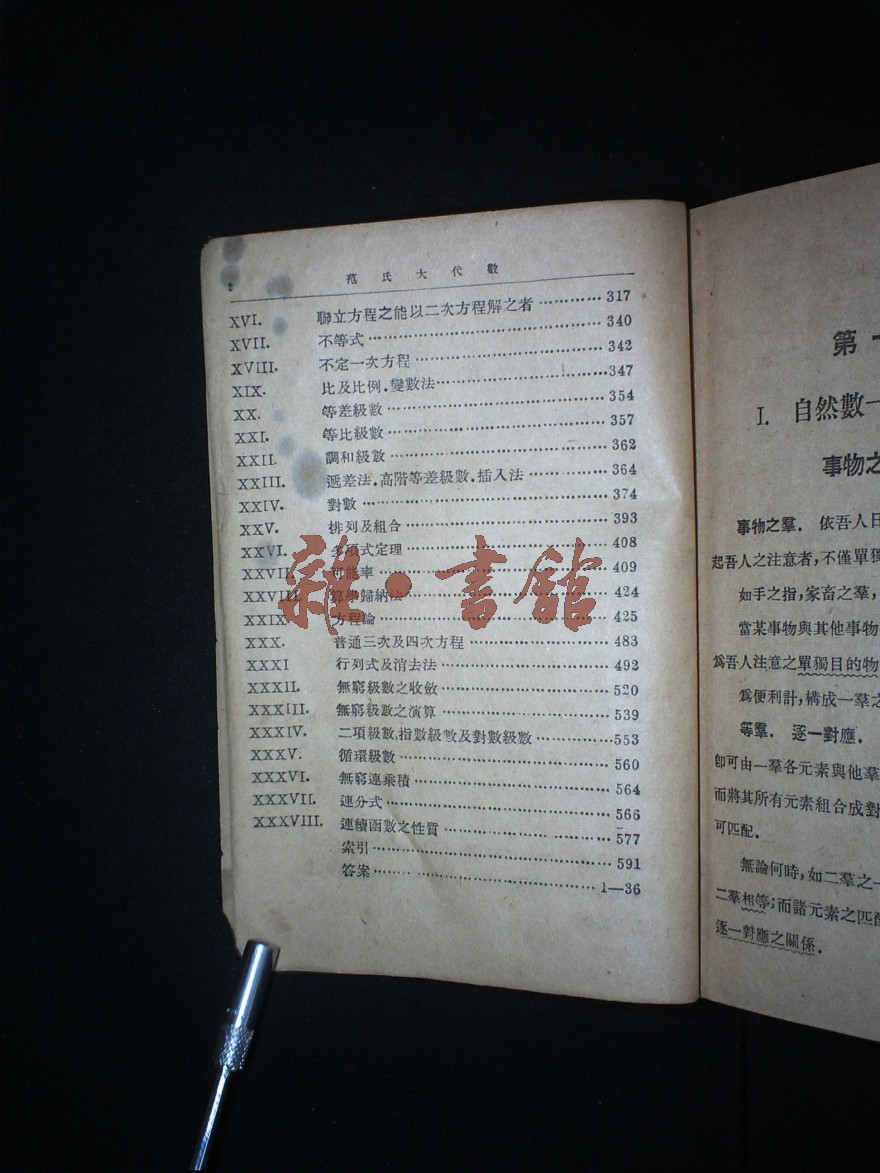 2 范氏大代數
XVI. 聯立方程之能以二次方程解之者 317
XVII. 不等式 340
XVIII. 不定一次方程 342
XIX. 比及比例.變數法 347
XX. 等差級數 354
XXI. 等比級數 357
XXII. 調和級數 362
XXIII. 遞差法.高階等差級數.插入法 364
XXIV. 對數 374
XXV. 排列及組合 393
XXVI. 多項式定理 408
XXVII. 可能率 409
XXVIII. 算學歸納法 424
XXIX. 方程論 425
XXX. 普通三次及四次方程 483
XXXI 行列式及消去法 492
XXXII. 無窮級數之收斂 520
XXXIII. 無窮級數之演算 539
XXXIV. 二項級數,指數級數及對數級數 553
XXXV. 循環級數 560
XXXVI. 無窮連乘積 564
XXXVII. 連分式 566
XXXVIII. 連續函數之性質 577
索引 591
答案 1—36
雜·書館
第一
I. 自然數一
事物之
事物之羣. 依吾人日
起吾人之注意者,不僅單獨
如手之指,家畜之羣,
當某事物與其他事物
爲吾人注意之單獨目的物
爲便利計,構成一羣之
等羣. 逐一對應.
卽可由一羣各元素與他羣
而將其所有元素組合成對
可匹配.
無論何時,如二羣之一
二羣相等;而諸元素之匹配
逐一對應之關係.